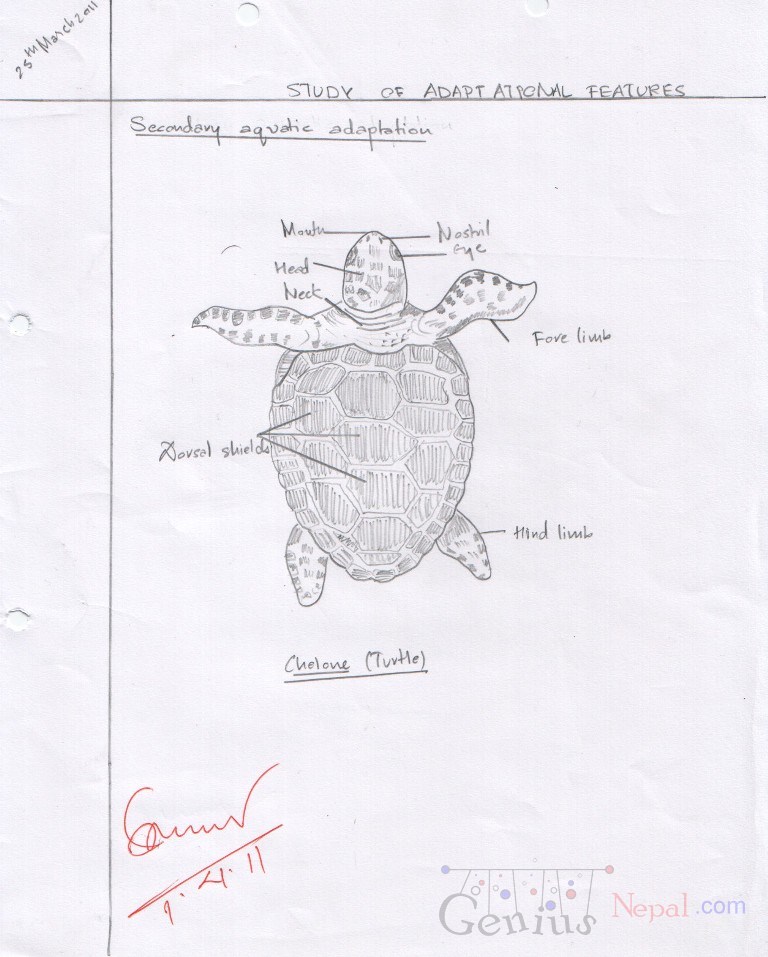 25th March 2011
STUDY OF ADAPTATIONAL FEATURES
Secondary aquatic adaptation
Mouth
Nostril
Eye
Head
Neck
Fore limb
Dorsal shields
Hind limb
Chelone (Turtle)
1.4.11
Genius Nepal.com